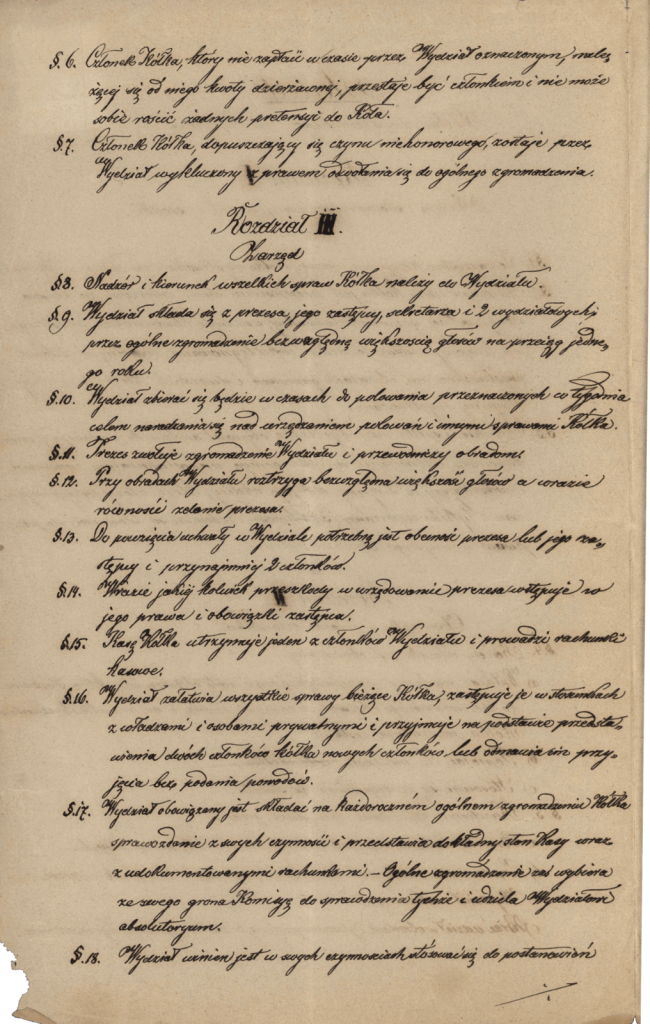 §. 6. Członek Kółka, który nie zapłaci w czasie przez Wydział oznaczonym, należ
żącej się od niego kwoty dzierżawnej, przestaje być członkiem i nie może
sobie rościć żadnych pretensyi do Koła.
§. 7. Członek Kółka, dopuszczający się czynu niehonorowego, zostaje przez
Wydział wykluczony z prawem odwołania się do ogólnego zgromadzenia.
Rozdział III.
Zarząd
§ 8. Nadzór i kierunek wszelkich spraw Kółka należy do Wydziału.
§. 9. Wydział składa się z prezesa, jego zastępcy, sekretarza i 2 wydziałowych,
przez ogólne zgromadzenie bezwzględną większością głosów na przeciąg jedne-
go roku.
§. 10. Wydział zbierać się będzie w czasach do polowania przeznaczonych co tygodnia
celem naradzania się nad urządzeniem polowań i innymi sprawami Kółka.
§. 11. Prezes zwołuje zgromadzenie Wydziału i przewodniczy obradom.
§. 12. Przy obradach Wydziału roztrzyga bezwzględna większość głosów a w razie
równości zdanie prezesa.
§. 13. Do powzięcia uchwały w Wydziale potrzebną jest obecność prezesa lub jego za-
stępcy i przynajmniej 2 członków.
§. 14. W razie jakiej kolwiek przeszkody w urzędowaniu prezesa wstępuje w
jego prawa i obowiązki zastępca.
§. 15. Kasę Kółka utrzymuje jeden z członków Wydziału i prowadzi rachunki
kasowe.
§. 16. Wydział załatwia wszystkie sprawy bieżące Kółka, zastępuje je w stosunkach
z władzami i osobami prywatnymi i przyjmuje na podstawie przedsta-
wienia dwóch członków kółka nowych członków lub odmawia im przy-
jęcia bez podania powodów.
§. 17. Wydział obowiązany jest składać na każdorocznem ogólnem zgromadzeniu Kółka
sprawozdanie z swych czynności i przedstawia dokładny stan kasy wraz
z udokumentowanymi rachunkami. – Ogólne zgromadzenie zaś wybiera
ze swego grona Komisyę do sprawdzenia tychże i udziela Wydziałowi
absolutoryum.
§. 18. Wydział winien jest w swych czynnościach stósować się do postanowień